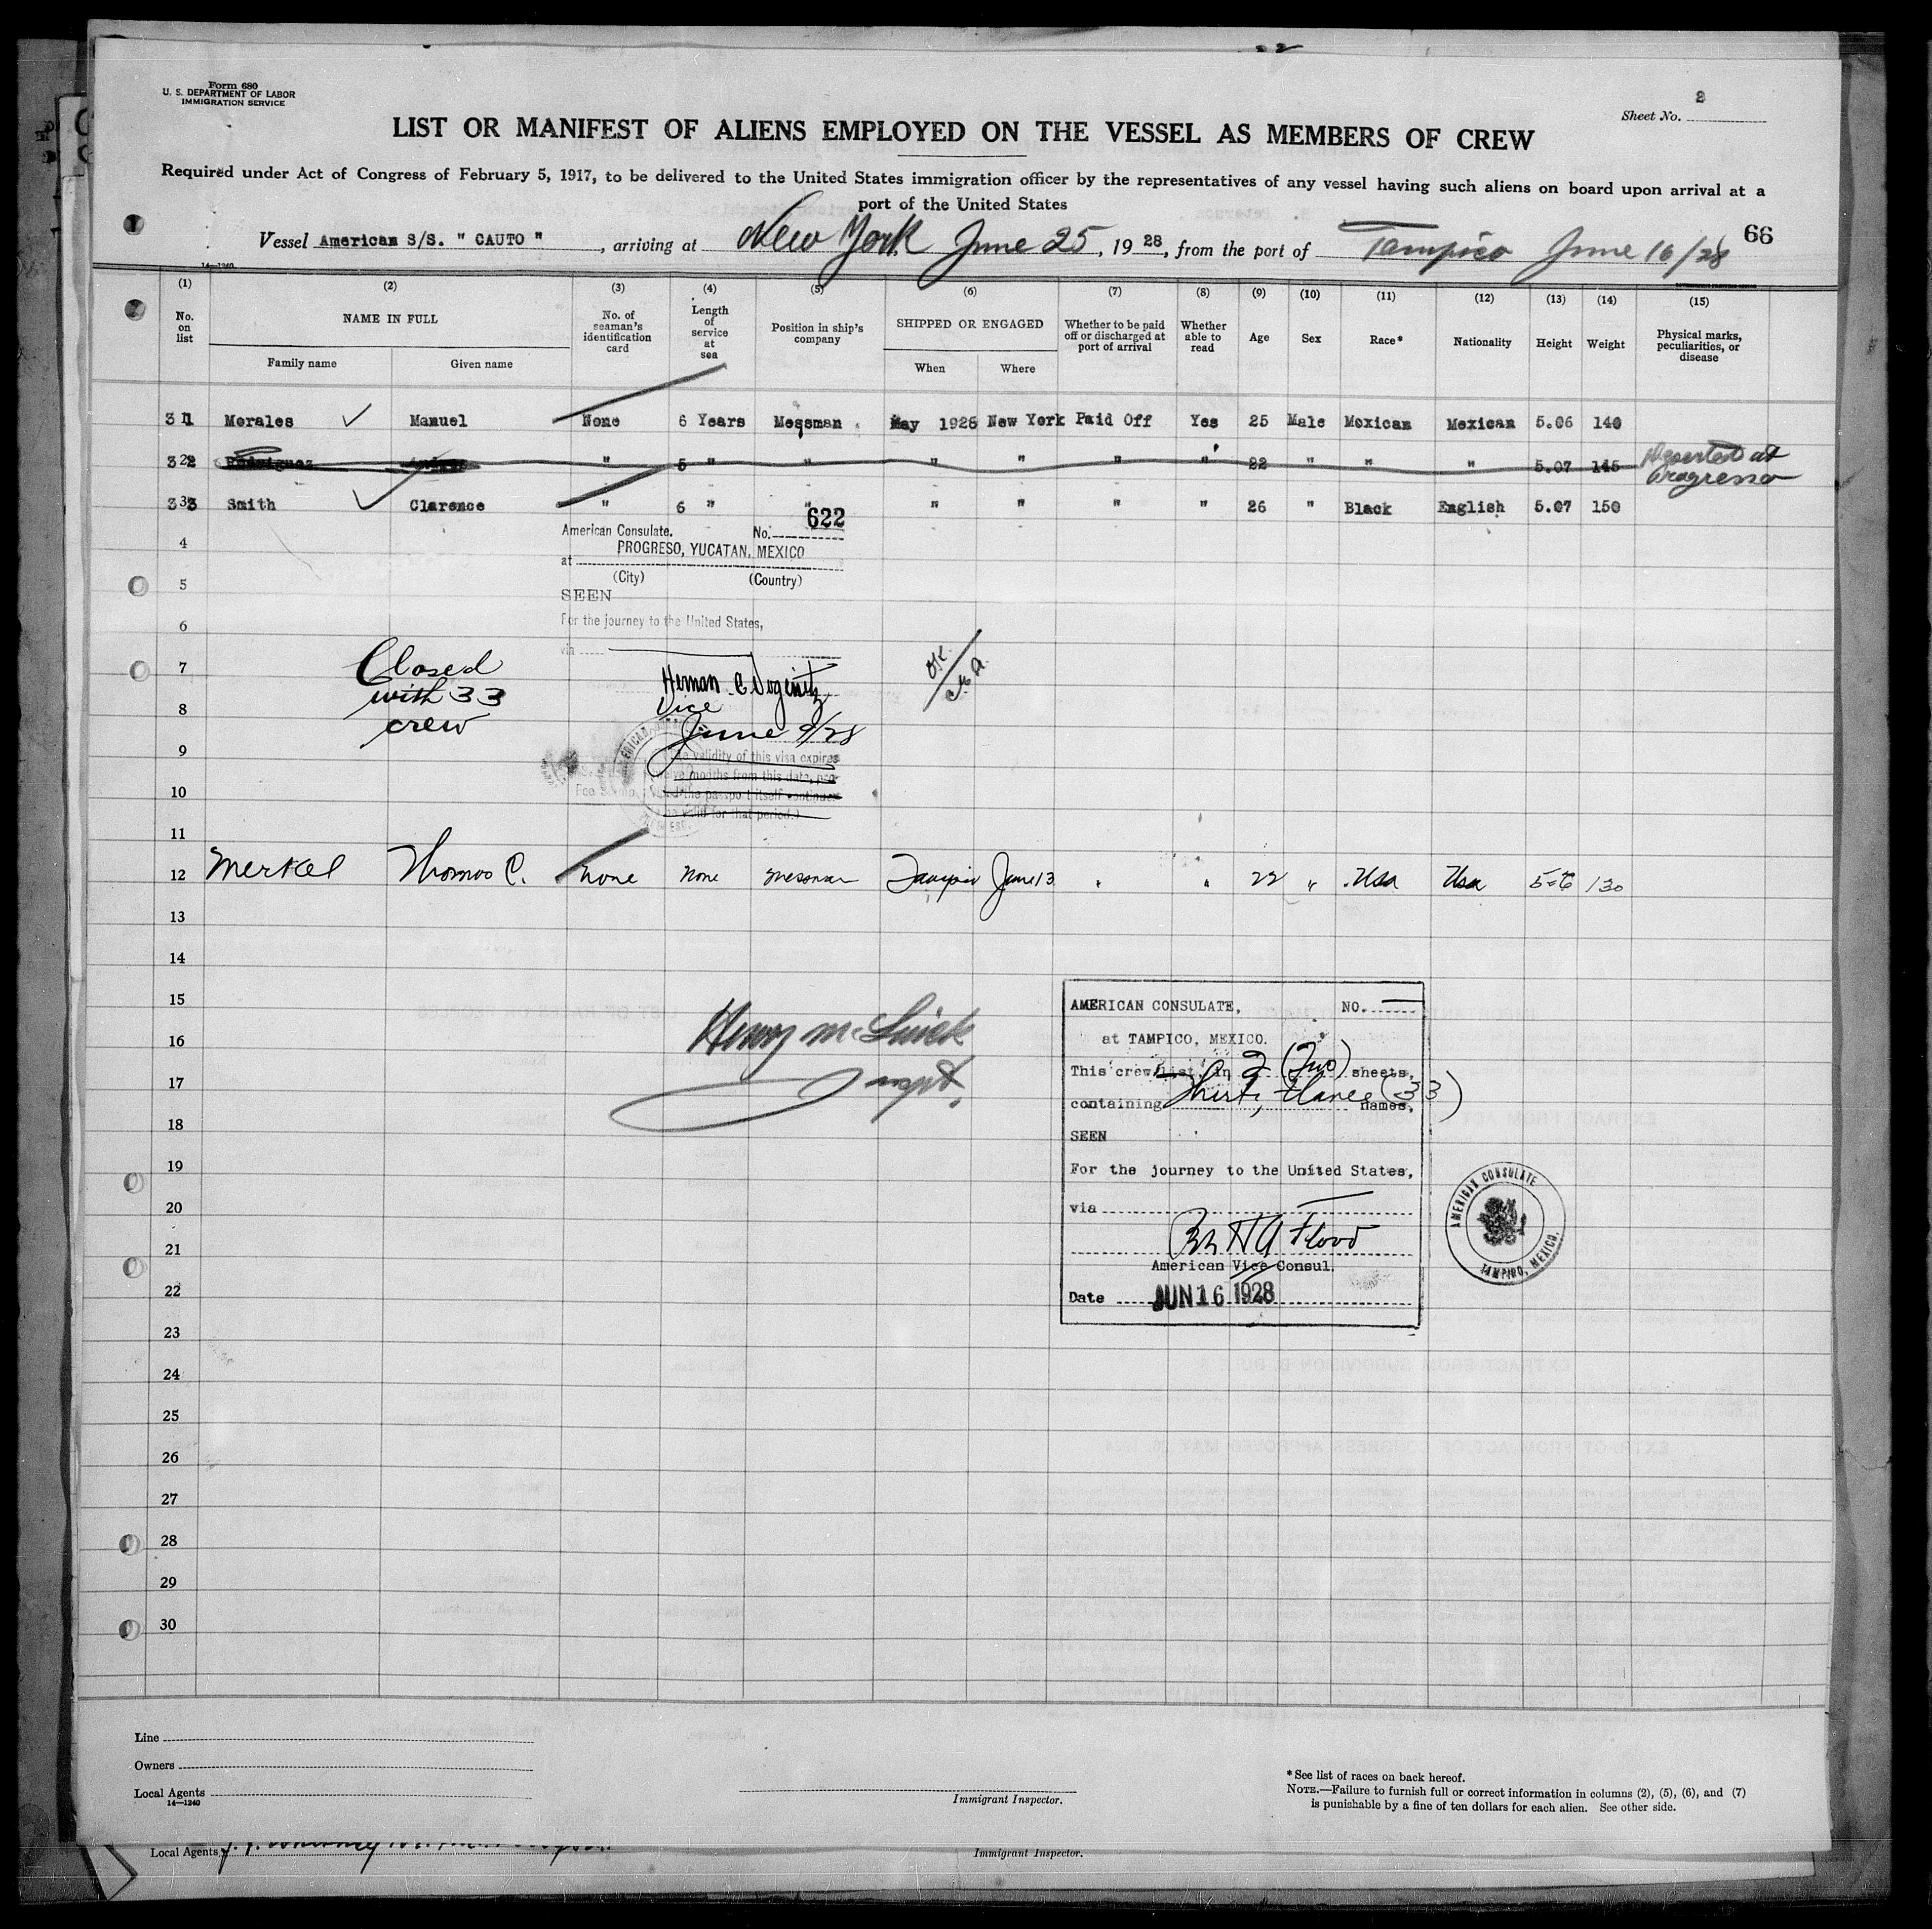 Form 680
U. S. DEPARTMENT OF LABOR
IMMIGRATION SERVICE
Sheet No. 2
LIST OR MANIFEST OF ALIENS EMPLOYED ON THE VESSEL AS MEMBERS OF CREW
Required under Act of Congress of February 5, 1917, to be delivered to the United States immigration officer by the representatives of any vessel having such aliens on board upon arrival at a
port of the United States
66
Vessel American S/S. " CAUTO " , arriving at New York June 25, 1928, from the port of Tampico June 16/28
14—1240
(1) (2) (3) (4) (5) (6) (7) (8) (9) (10) (11) (12) (13) (14) (15)
No. on list
NAME IN FULL
Family name
Given name
No. of seaman's identification card
Length of service at sea
Position in ship's company
SHIPPED OR ENGAGED
When
Where
Whether to be paid off or discharged at port of arrival
Whether able to read
Age
Sex
Race*
Nationality
Height
Weight
Physical marks, peculiarities, or disease
31 Morales Manuel None 6 Years Messman May 1928 New York Paid Off Yes 25 Male Mexican Mexican 5.06 140
32 Rodriguez " 5 " " " " " " 22 " " " 5.07 145 Deserted at Progresso
33 Smith Clarence " 6 " " " " " " 26 " Black English 5.07 150
American Consulate. No. 622
4
at PROGRESO, YUCATAN, MEXICO
(City) (Country)
5
SEEN
6
For the journey to the United States,
via
7
Closed
with 33
crew
OK
8
Vice
June 9/28
9
The validity of this visa expires
twelve months from this date, pro-
10
vided the passport itself continues
to be valid for that period.)
11
12 Merkel Thomas C. None None Messman Tampico June 13 " " 22 " Usa Usa 5-6 130
13
14
15
16
17
18
19
20
21
22
23
24
25
26
27
28
29
30
AMERICAN CONSULATE, NO.
at TAMPICO, MEXICO.
This crew list, in 2 (Two) sheets,
containing Thirty three (33) names,
SEEN
For the journey to the United States,
via
American Vice Consul.
Date JUN 16 1928
AMERICAN CONSULATE
TAMPICO, MEXICO.
Line
Owners
Local Agents
14—1240
Immigrant Inspector.
* See list of races on back hereof.
NOTE.—Failure to furnish full or correct information in columns (2), (5), (6), and (7)
is punishable by a fine of ten dollars for each alien. See other side.
Local Agents
Immigrant Inspector.